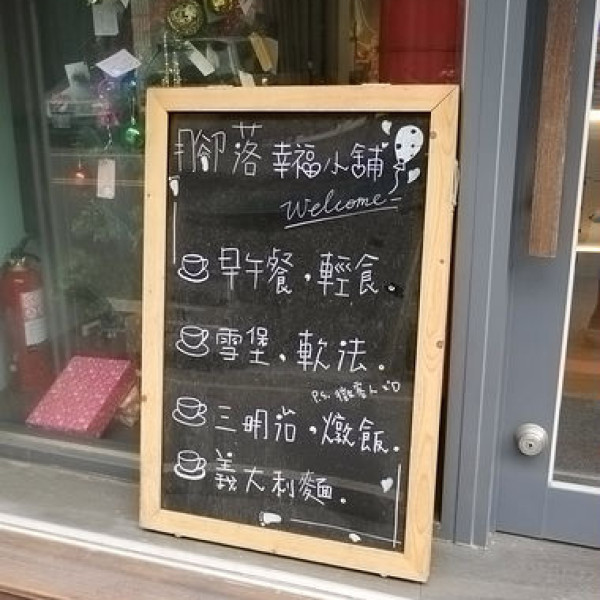 腳落幸福小舖
Welcome
早午餐,輕食。
雪堡、軟法。
三明治,燉飯。
義大利麵。